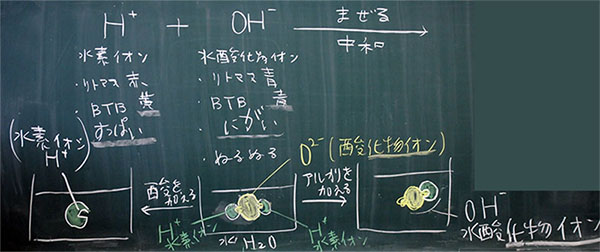 H⁺ + OH⁻ まぜる
中和
水素イオン
・リトマス 赤
・BTB 黄
すっぱい
水酸化物イオン
・リトマス 青
・BTB 青
にがい
・ぬるぬる
(水素イオン)
H⁺
酸を
加える
O²⁻(酸化物イオン)
アルカリを
加える
H⁺
水素イオン
水 H₂O
H⁺
水素イオン
OH⁻
水酸化物イオン